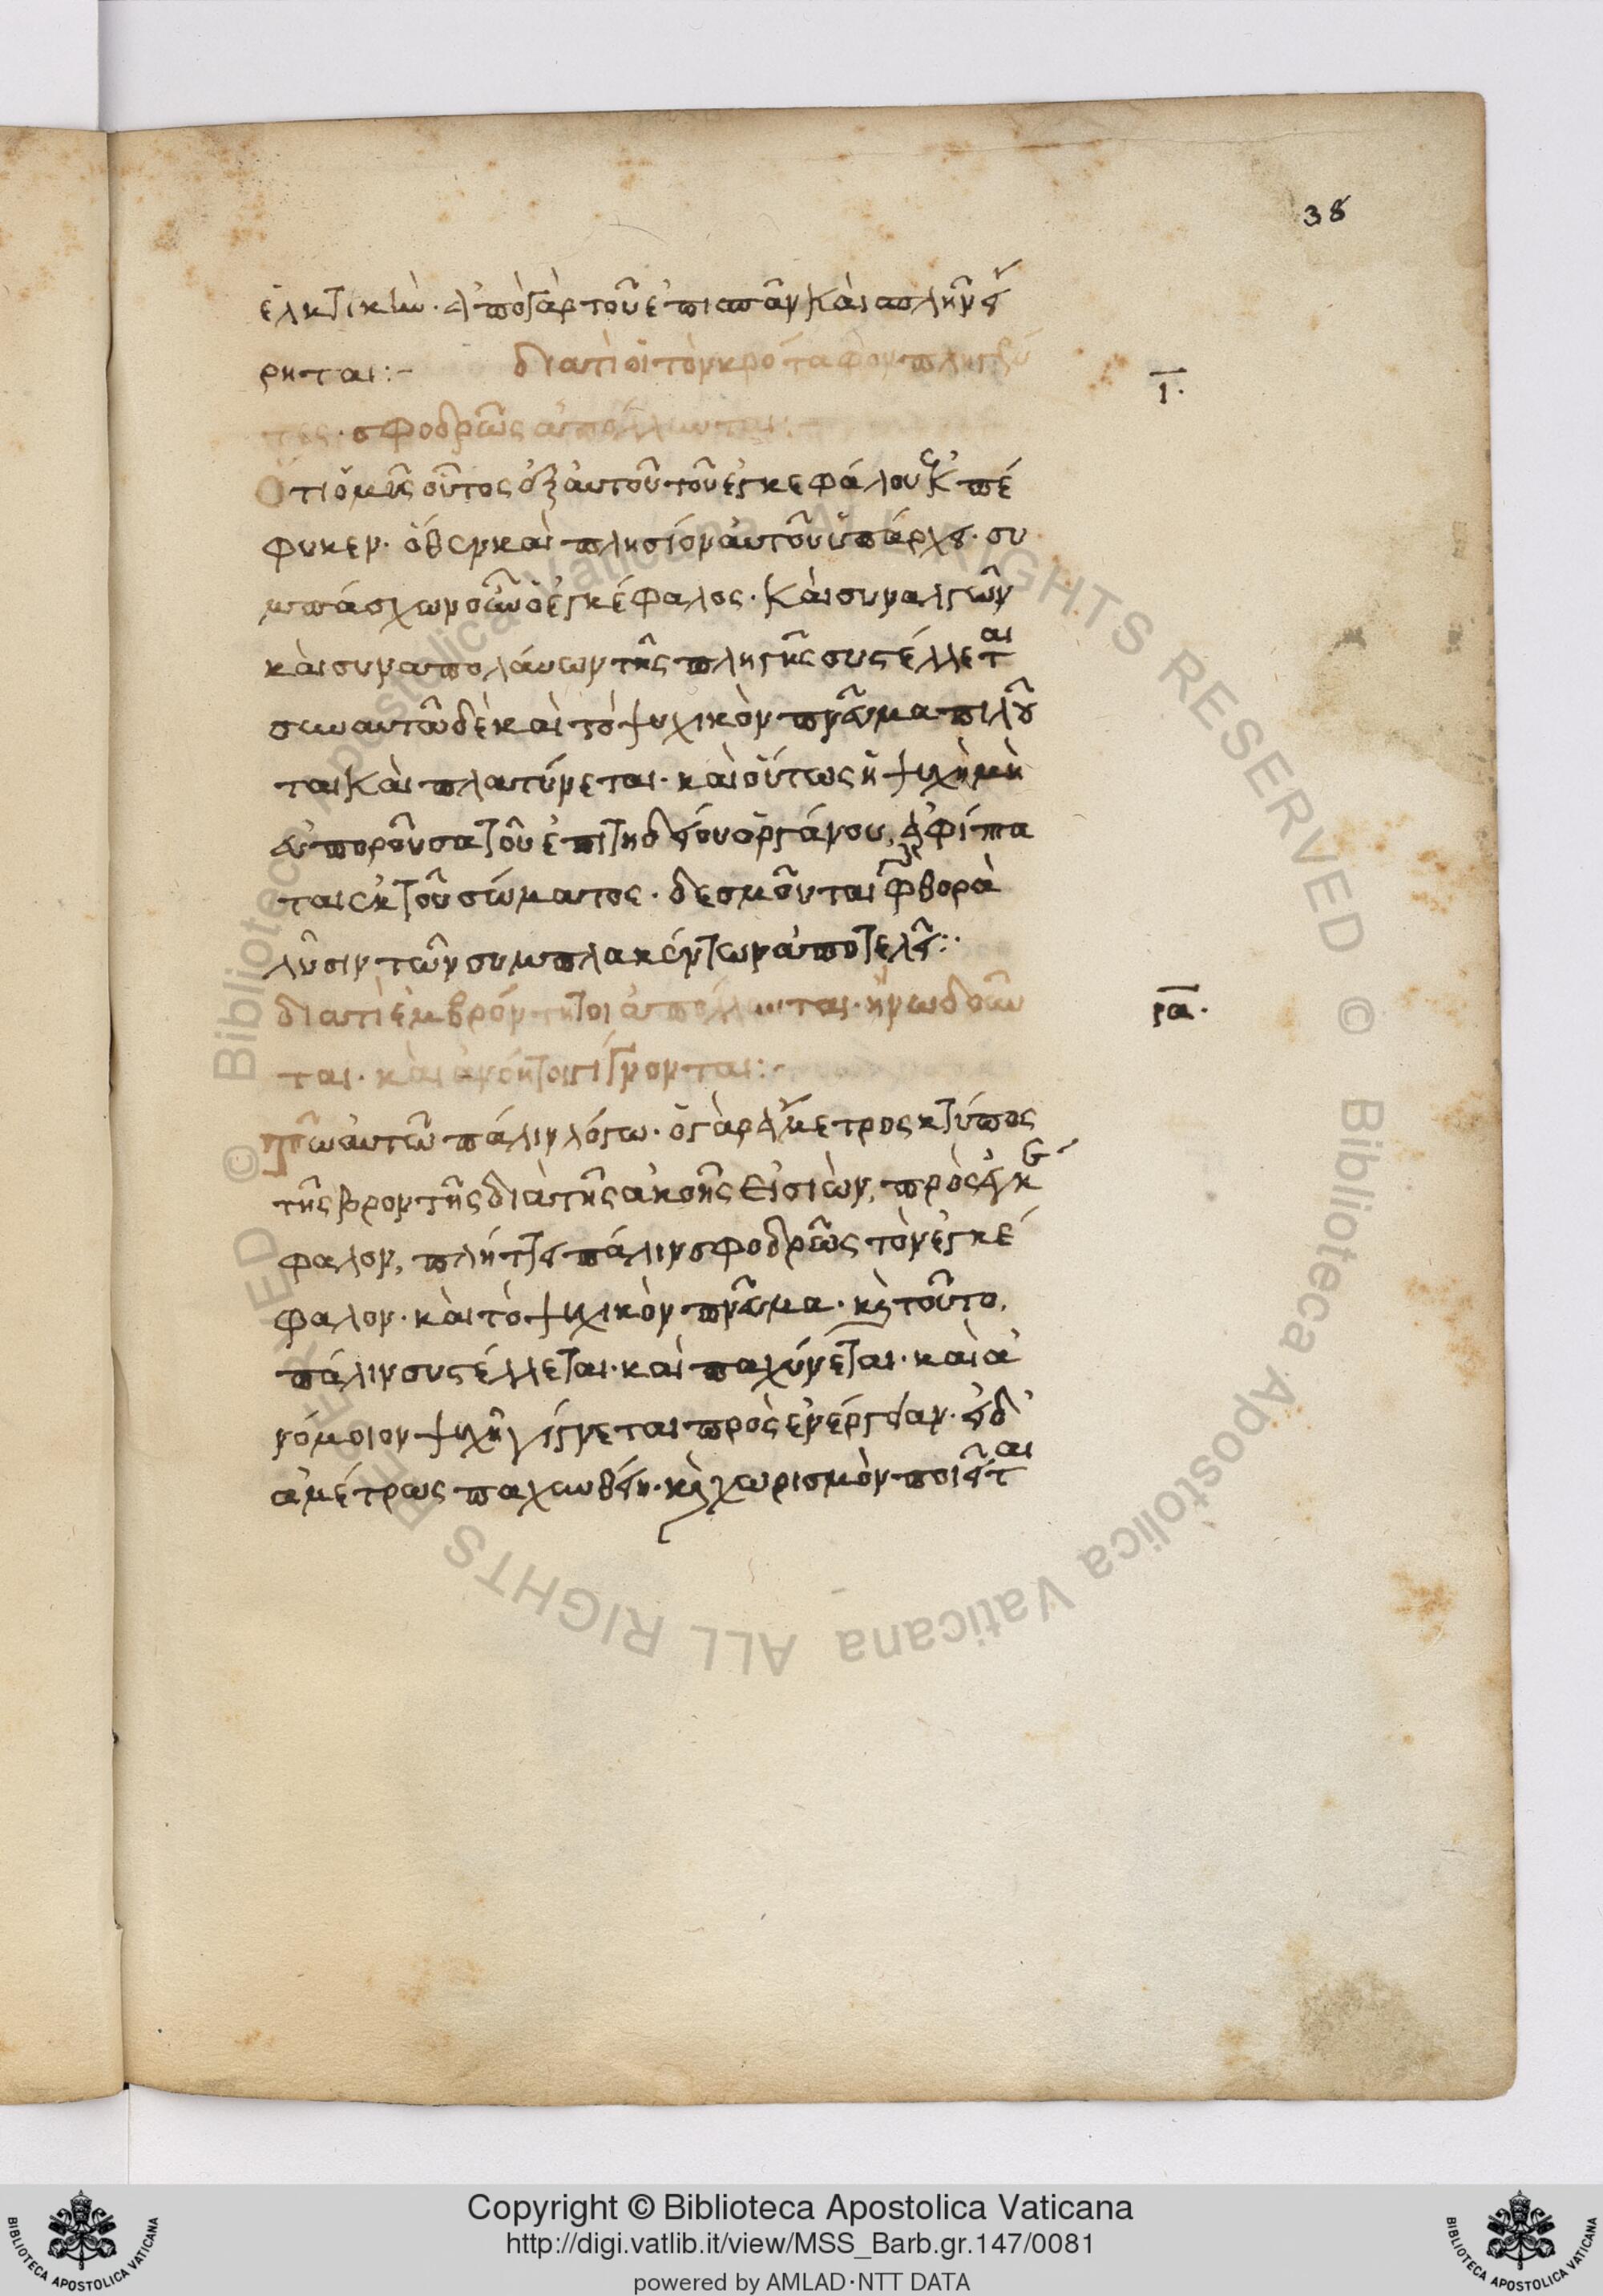 38
ἑλκτικὴν· ἀπὸ γὰρ τοῦ ἐπισπᾶν καὶ ἀπλήν εἴ
ρηται:-
διατὶ οἱ τὸν κρόταφον πληγέν
ι.
τες· σφοδρῶς ἀπόλλυνται:
Ὅτι ὁ μῦς οὗτος ἐξ αὐτοῦ τοῦ ἐγκεφάλου ἐκπέ
φυκεν· ὅθεν καὶ πλησίον αὐτοῦ ὑπάρχει· συ
μπάσχων οὖν ὁ ἐγκέφαλος· καὶ συναλγῶν
καὶ συναπολαύων τῆς πληγῆς συστέλλεται
σὺν αὐτῶ δὲ καὶ τὸ ψυχικὸν πνεῦμα πιλοῦ
ται καὶ πλατύνεται· καὶ οὕτως ἡ ψυχὴ μὴ
εὐποροῦσα τοῦ ἐπιτηδείου ὀργάνου, ἀφίπτα
ται ἐκ τοῦ σώματος· δεσμοῦνται φθορὰ
λύσιν τῶν συμπλακέντων ἀποτελεῖ:·
διατὶ ἐμβρόντητοι ἀπόλλυνται· ἢ νωδοῦν
ρα.
ται· καὶ ἀνόητοι γίγνονται:-
τῶ αὐτῶ πάλιν λόγω· ὁ γὰρ ἄμετρος κτύπος
τῆς βροντῆς διὰ τῆς ἀκοῆς εἰσιὼν, πρὸς ἐγκέ
φαλον, πλήττει πάλιν σφοδρῶς τὸν ἐγκέ
φαλον· καὶ τὸ ψυχικὸν πνεῦμα· καὶ τοῦτο,
πάλιν συστέλλεται· καὶ παχύνεται· καὶ ἀ
νόμοιον ψυχῆ γίγνεται πρὸς ἐνέργειαν· εἰ δ'
ἀμέτρως παχυνθείη· καὶ χωρισμὸν ποιεῖται
Copyright © Biblioteca Apostolica Vaticana
http://digi.vatlib.it/view/MSS_Barb.gr.147/0081
powered by AMLAD·NTT DATA
BIBLIOTECA APOSTOLICA VATICANA
BIBLIOTECA APOSTOLICA VATICANA
© Biblioteca Apostolica Vaticana ALL RIGHTS RESERVED © Biblioteca Apostolica Vaticana ALL RIGHTS RESERVED